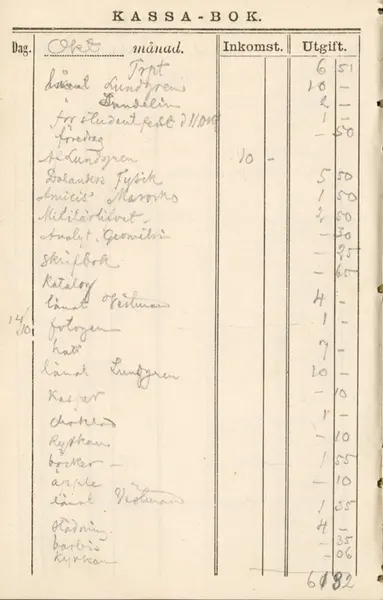 KASSA-BOK.
Dag. Okt månad. Inkomst. Utgift.
Trpt 6 51
lånat Lundgren 10 -
" Sundelin 2 -
för studentfest d 1 -
föredrag - 50
A. Lundgren 10 -
Dalanders Fysik 5 50
Amicis' Marocko 1 50
Militärlifvet 2 50
Analyt. Geometri - 30
Skrifbok - 25
Katalog - 65
lånat Vestman 4 -
14/10 fotogen 1 -
hatt 7 -
lånat Lundgren 10 -
Kasper - 10
choklad 1 -
Kyrkan - 10
böcker - 1 55
äpple - 10
lånat Vestman 1 35
städning 4 -
barbis - 35
Kyrkan - 06